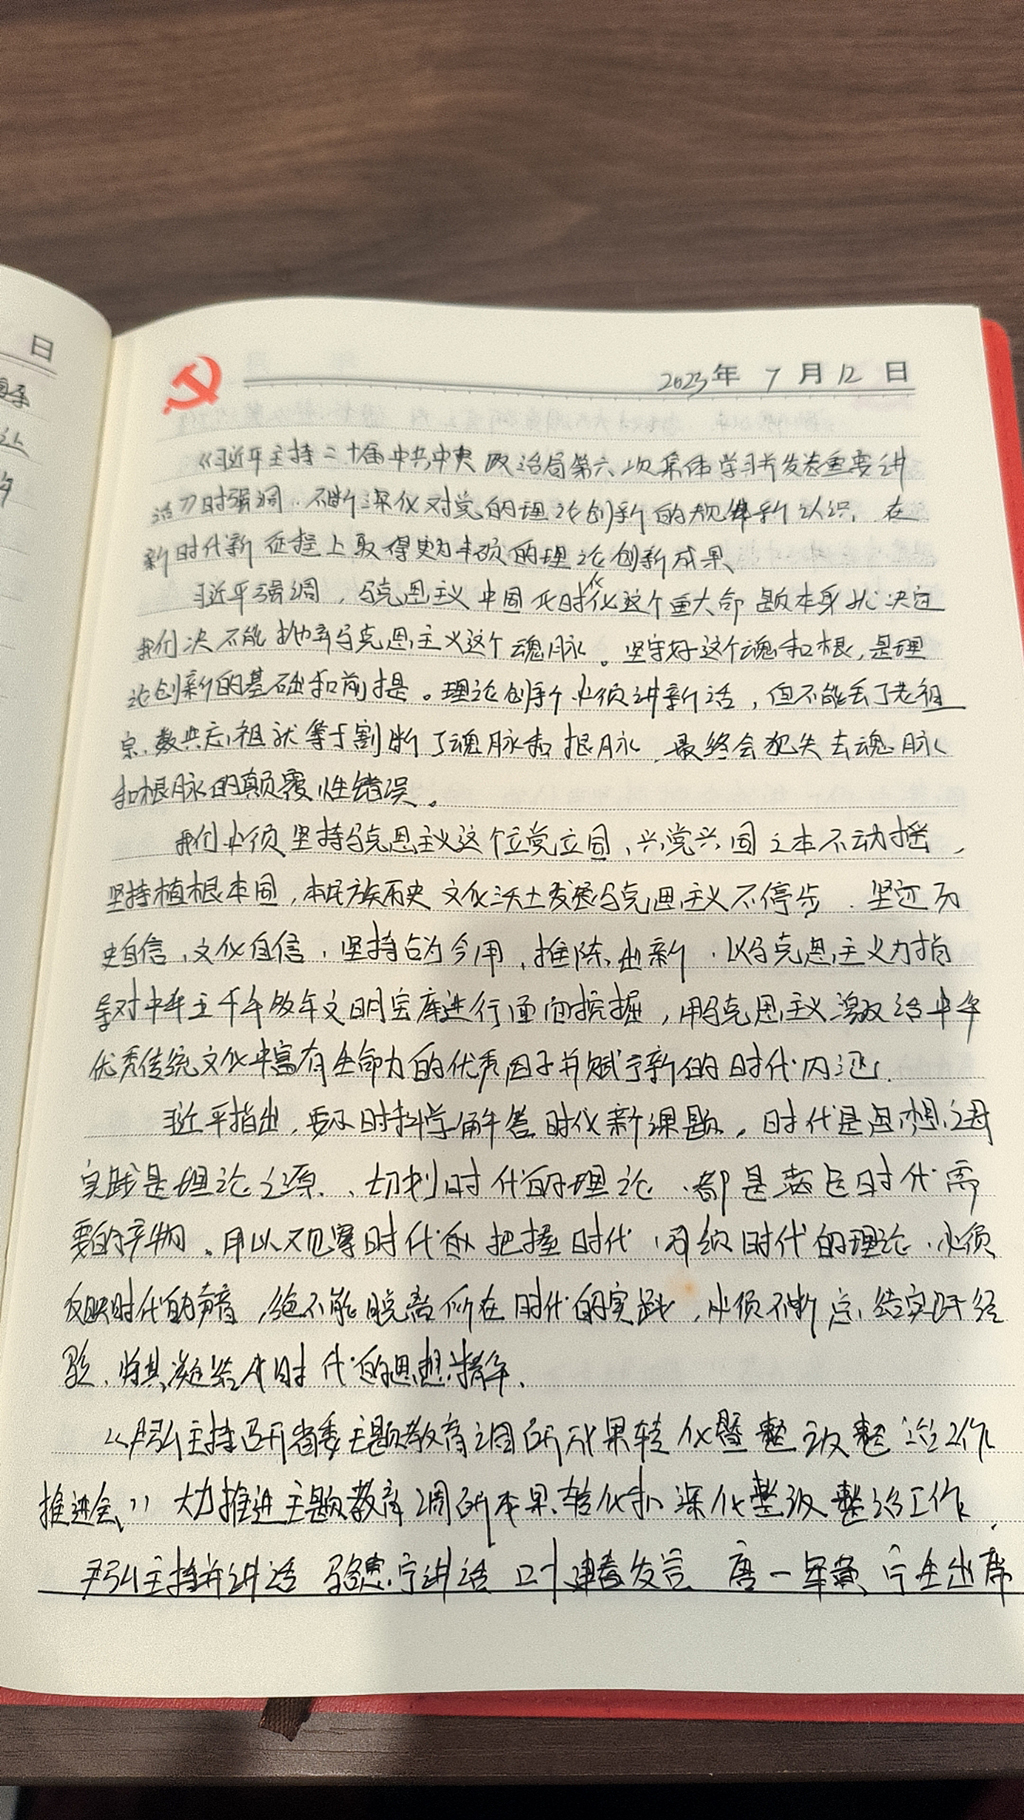 日
2023年 7月12日
《习近平主持二十届中共中央政治局第六次集体学习并发表重要讲
话》时强调：不断深化对党的理论创新的规律新认识，在
新时代新征程上取得更为丰硕的理论创新成果。
习近平强调，马克思主义中国化时代化这个重大命题本身就决定
我们决不能抛弃马克思主义这个魂脉。坚守好这个魂和根，是理
论创新的基础和前提。理论创新必须讲新话，但不能丢了老祖
宗，数典忘祖就等于割断了魂脉和根脉，最终会犯失去魂脉
和根脉的颠覆性错误。
我们必须坚持马克思主义这个立党立国、兴党兴国之本不动摇，
坚持植根本国、本民族历史文化沃土发展马克思主义不停步，坚定历
史自信、文化自信，坚持古为今用、推陈出新，以马克思主义为指
导对中华五千年文明宝库进行全面挖掘，用马克思主义激活中华
优秀传统文化中富有生命力的优秀因子并赋予新的时代内涵。
习近平指出，要及时科学解答时代新课题。时代是思想之母
实践是理论之源。一切划时代的理论，都是满足时代需
要的产物。用以观察时代、把握时代、引领时代的理论，必须
反映时代的声音，绝不能脱离所在时代的实践，必须不断总结实践经
验，将其凝结成时代的思想精华。
《尹弘主持召开省委主题教育调研成果转化暨整改整治工作
推进会》大力推进主题教育调研成果转化和深化整改整治工作
尹弘主持并讲话 马德宁讲话 建春发言 唐一军 出席